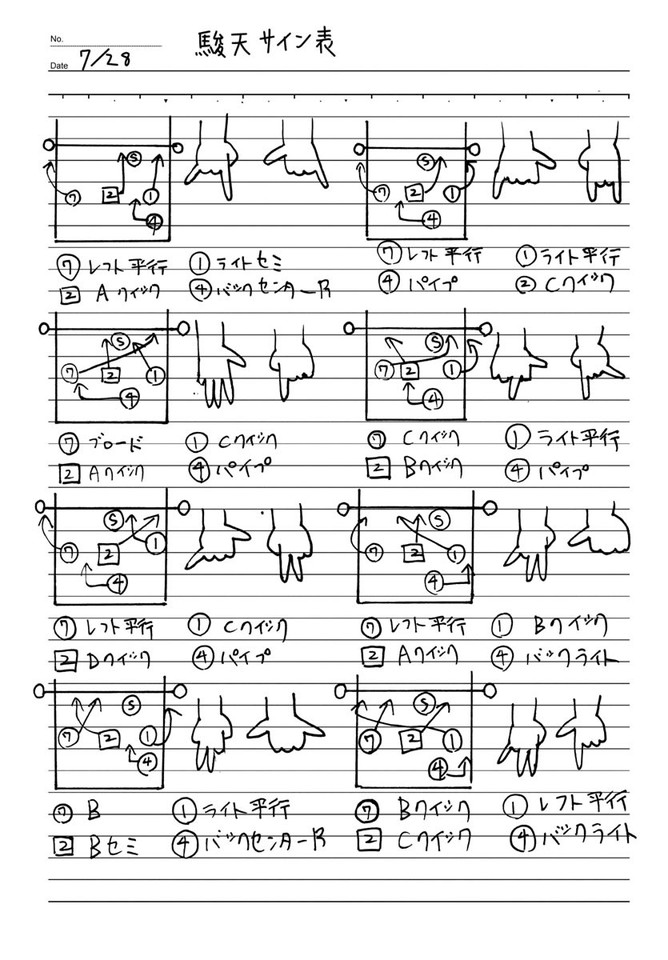 No.
Date 7/28
駿天サイン表
⑤
⑦ 2 ①
④
⑤
⑦ 2 ①
④
⑦ レフト平行 ① ライトセミ
2 Aクイック ④ バックセンターB
⑦ レフト平行 ① ライト平行
④ パイプ ② Cクイック
Ⓢ
⑦ 2 ①
④
Ⓢ
⑦ 2 ①
④
⑦ ブロード ① Cクイック
2 Aクイック ④ パイプ
⑦ Cクイック ① ライト平行
2 Bクイック ④ パイプ
Ⓢ
⑦ 2 ①
④
Ⓢ
⑦ 2 ①
④
⑦ レフト平行 ① Cクイック
2 Dクイック ④ パイプ
⑦ レフト平行 ① Bクイック
2 Aクイック ④ バックライト
Ⓢ
⑦ 2 ①
④
Ⓢ
⑦ 2 ①
④
⑦ B ① ライト平行
2 Bセミ ④ バックセンターB
⑦ Bクイック ① レフト平行
2 Cクイック ④ バックライト